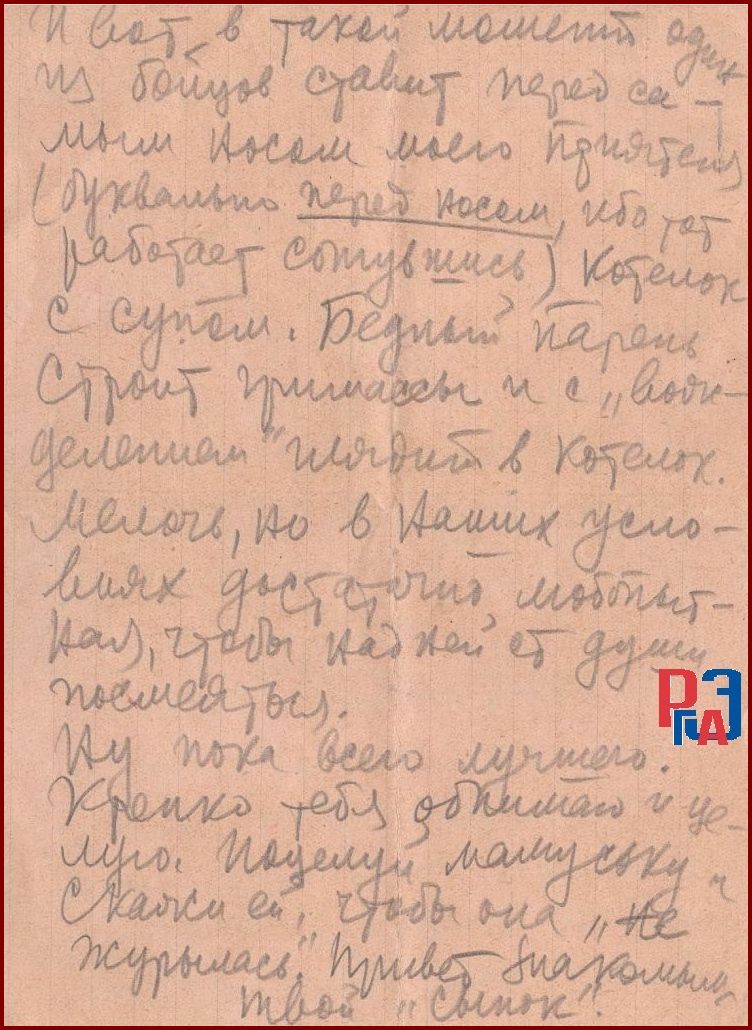 И вот, в такой момент один
из бойцов ставит перед са-
мым носом моего приятеля
(буквально перед носом, ибо тот
работает согнувшись) котелок
с супом. Бедный парень
строит гримассы и с „вожж-
делением“ глядит в котелок.
Мелочь, но в наших усло-
виях достаточно любопыт-
ная, чтобы над ней от души
посмеяться.
Ну пока всего лучшего.
Крепко тебя обнимаю и це-
лую. Поцелуй мамуську и
скажи ей, чтобы она „не
журылась“. Привет знакомым.
Твой „сынок“.
РГАЭ